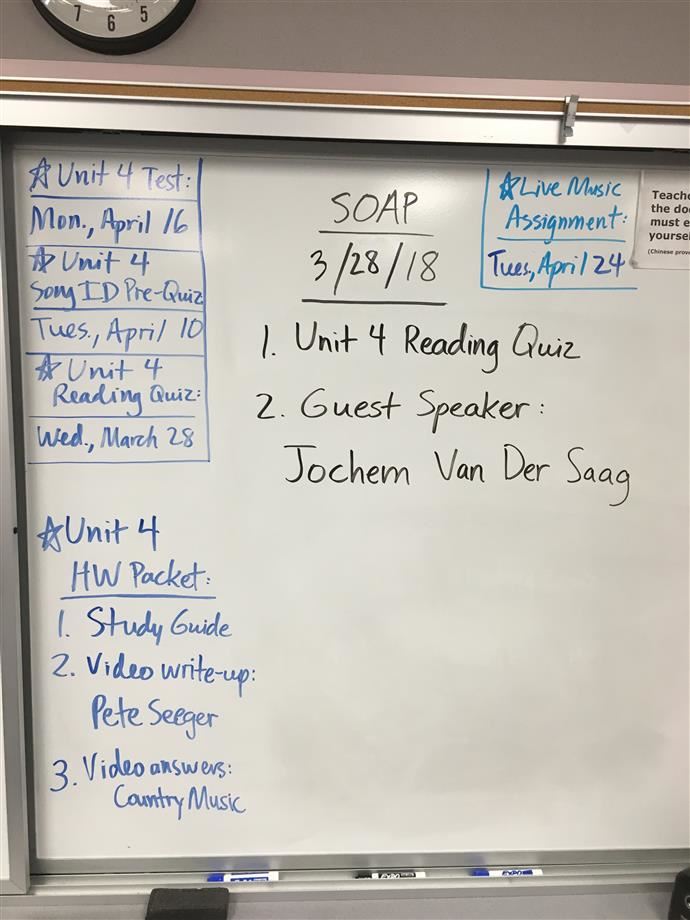 7 6 5
☆Unit 4 Test:
Mon., April 16
☆ Unit 4
Song ID Pre-Quiz
Tues., April 10
☆ Unit 4
Reading Quiz:
Wed., March 28
☆Unit 4
HW Packet:
1. Study Guide
2. Video write-up:
Pete Seeger
3. Video answers:
Country Music
SOAP
3/28/18
1. Unit 4 Reading Quiz
2. Guest Speaker:
Jochem Van Der Saag
☆Live Music
Assignment:
Tues., April 24
the
must
(Chinese
EXPO
EXPO